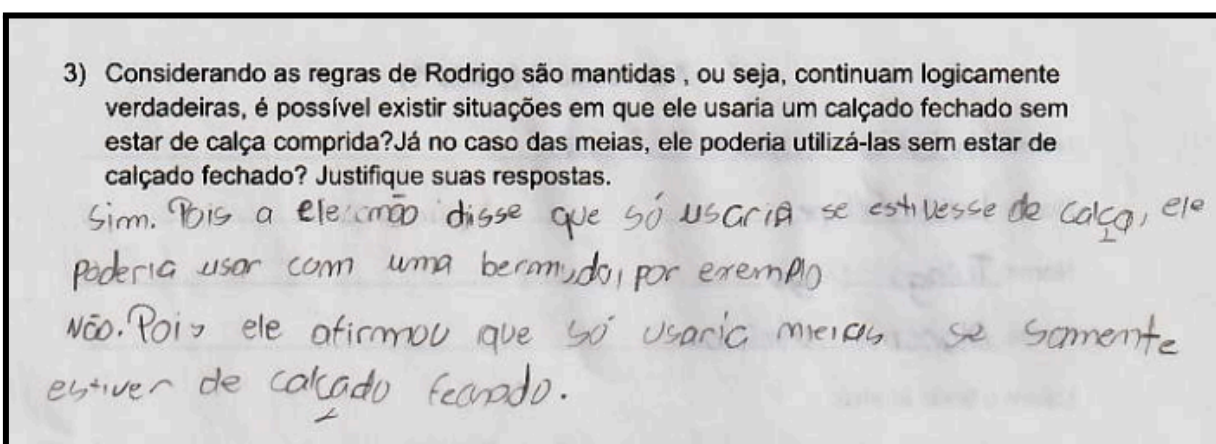 3) Considerando as regras de Rodrigo são mantidas , ou seja, continuam logicamente
verdadeiras, é possível existir situações em que ele usaria um calçado fechado sem
estar de calça comprida?Já no caso das meias, ele poderia utilizá-las sem estar de
calçado fechado? Justifique suas respostas.
Sim. Pois a ele não disse que só usaria se estivesse de calça, ele
poderia usar com uma bermuda, por exemplo
Não. Pois ele afirmou que só usaria meias se somente
estiver de calçado fechado.